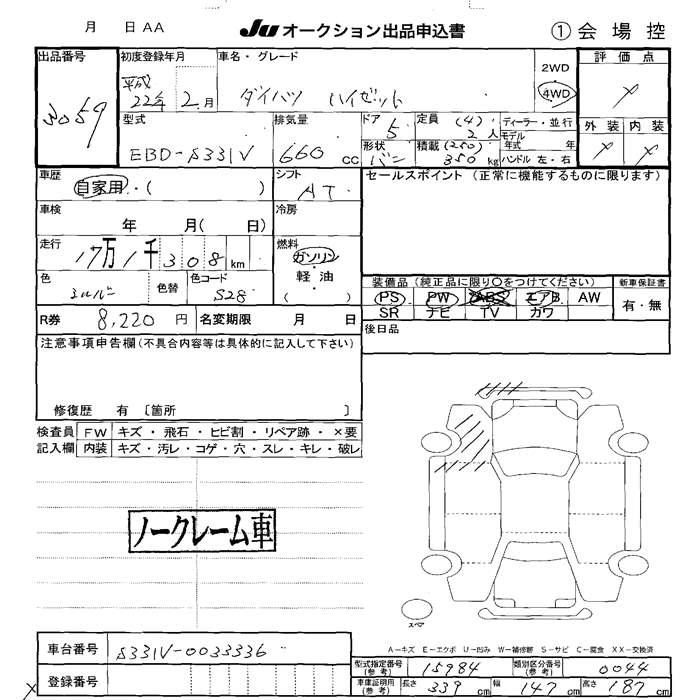 月 日 AA
JU オークション出品申込書
① 会場控
出品番号
3059
初度登録年月
平成
22年 2月
車名・グレード
ダイハツ ハイゼット
2WD
4WD
評価点
×
外装 内装
× ×
型式
EBD-S331V
排気量
660 cc
ドア
5
形状
バン
定員 (4)
2人
積載 (250)
350 kg
ディーラー・並行
モデル
年式 年
ハンドル 左・右
車歴
自家用・( )
シフト
AT
セールスポイント (正常に機能するものに限ります)
車検
年 月( 日)
冷房
走行
17万1千308 km
燃料
ガソリン
軽・油
( )
色
シルバー
色替
色コード
S28
装備品 (純正品に限り○をつけてください)
PS PW ABS エアB AW
SR ナビ TV カワ
新車保証書
有・無
R券 8,220 円
名変期限 月 日
後日品
注意事項申告欄(不具合内容等は具体的に記入して下さい)
修復歴 有 〔箇所 〕
検査員
記入欄
FW キズ・飛石・ヒビ割・リペア跡・×要
内装 キズ・汚レ・コゲ・穴・スレ・キレ・破レ
ノークレーム車
スペア
A−キズ E−エクボ U−凹み W−補修跡 S−サビ C−腐食 XX−交換済
車台番号 S331V-0033336
登録番号
型式指定番号
(参考)
15984
類別区分番号
(参考)
0044
車庫証明用
(参考)
長さ 339 cm
幅 147 cm
高さ 187 cm
×